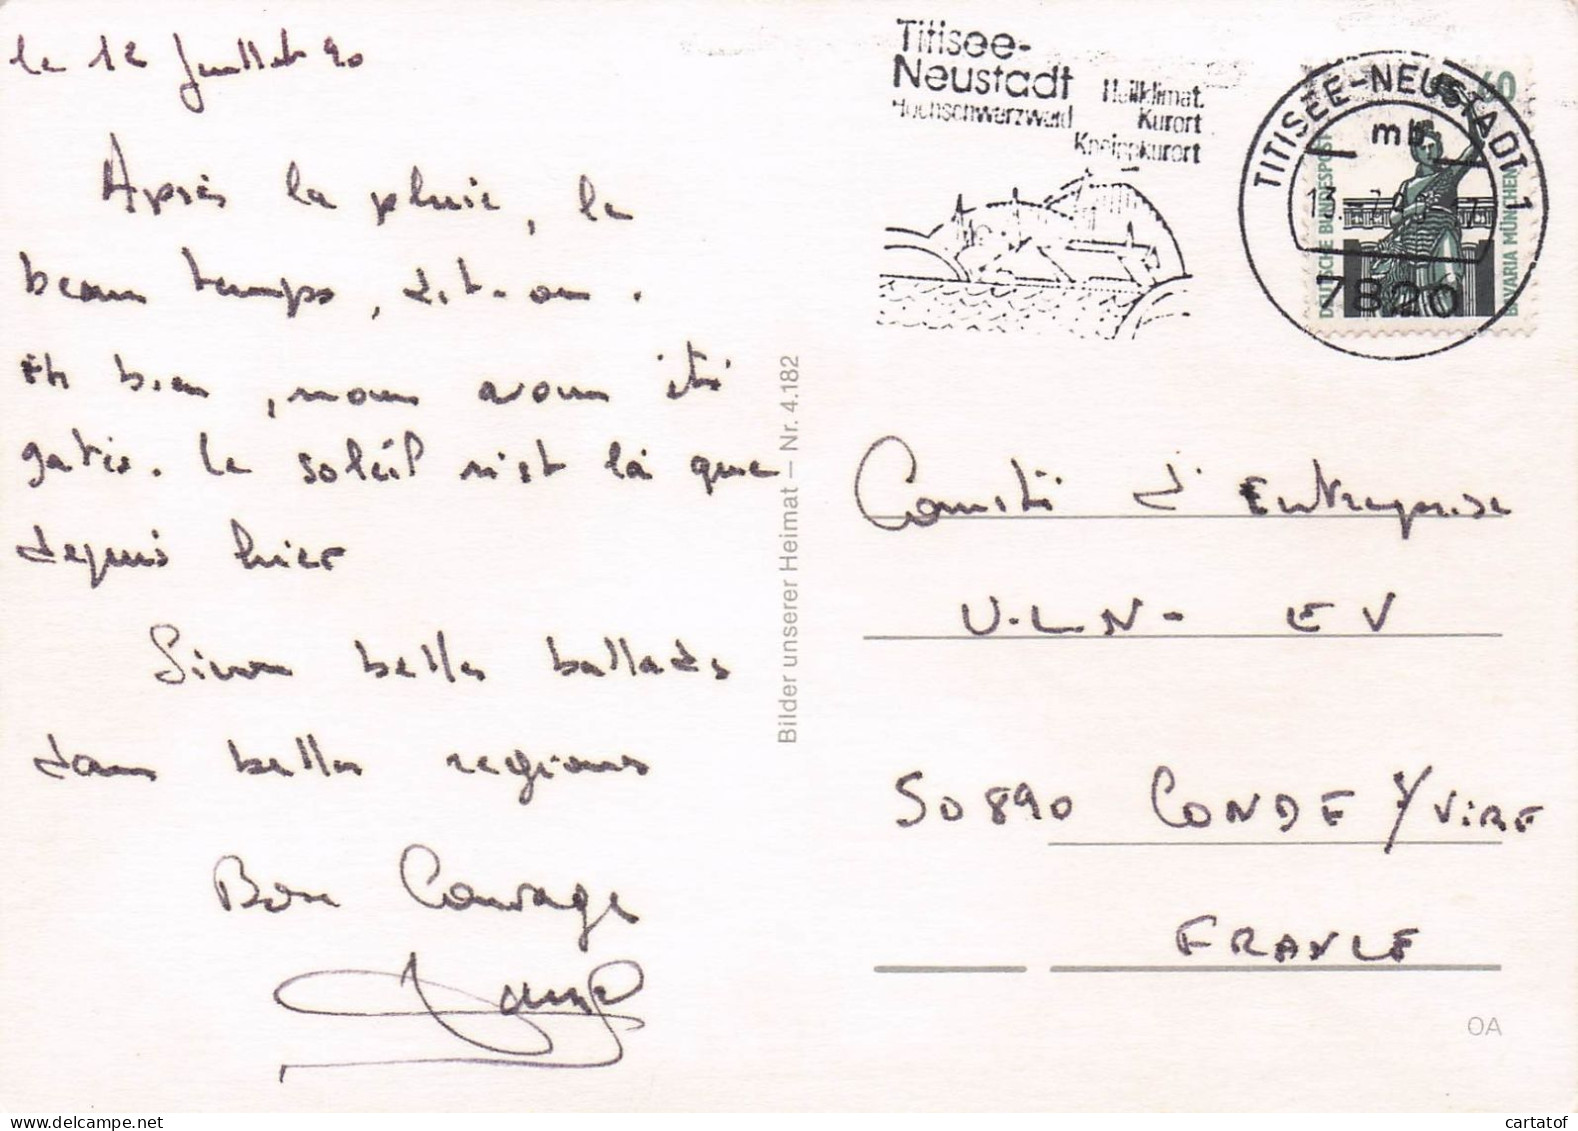 le 12 Juillet 90
Après la pluie, le
beau temps, dit-on.
Eh bien, nous avons été
gatés. Le soleil n'est là que
depuis hier
Sinon belles ballades
dans belles regions
Bon Courage
Titisee-
Neustadt
Hochschwarzwald
Heilklimat.
Kurort
Kneippkurort
TITISEE-NEUSTADT 1
mb
13.
7820
60
DEUTSCHE BUNDESPOST
BAVARIA MÜNCHEN
Bilder unserer Heimat – Nr. 4.182
Comité d'Entreprise
U.L.N- EV
50890 CONDE S/ VIRE
FRANCE
OA
cartatof